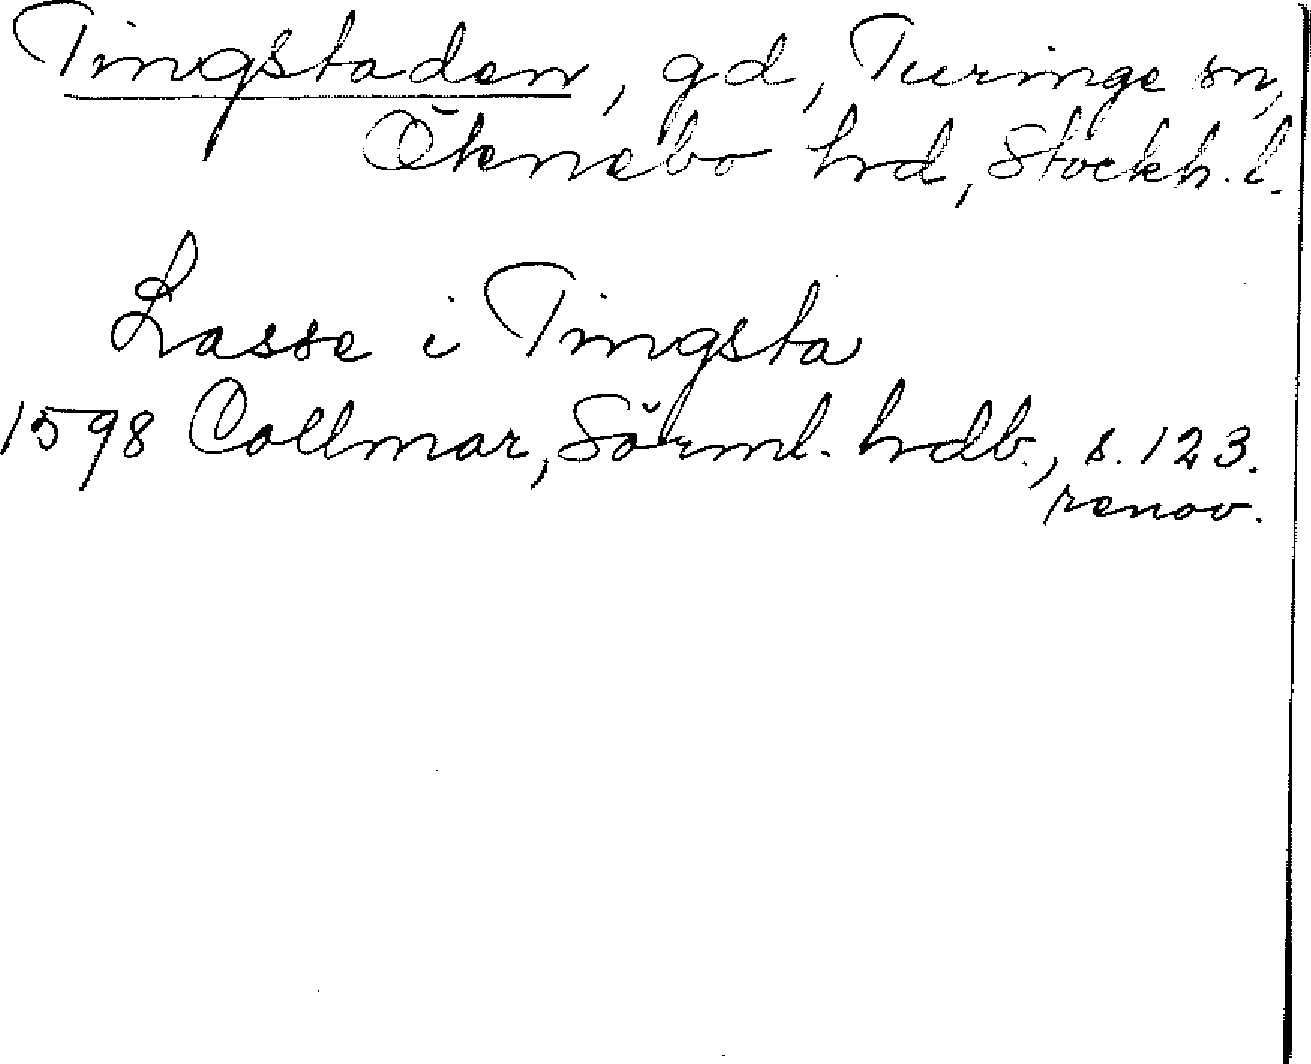 Tingstaden, gd, Turinge sn,
Öknebo hrd, Stockh. l.
Lasse i Tingsta
1598 Collmar, Sörml. hrdb., s. 123.
renov.